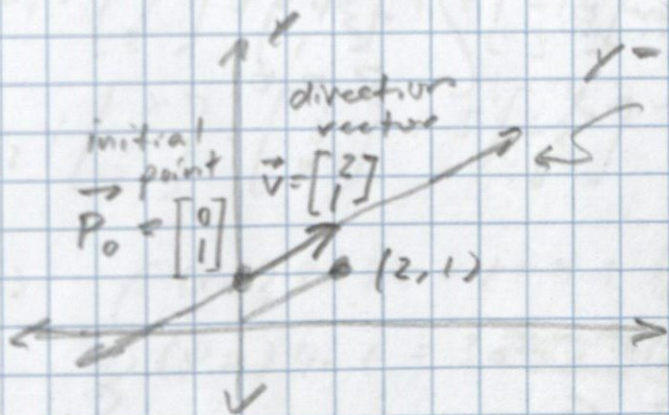 y
y =
direction
vector
initial
point
v⃗ = [2 1]
P⃗₀ = [0 1]
(2, 1)